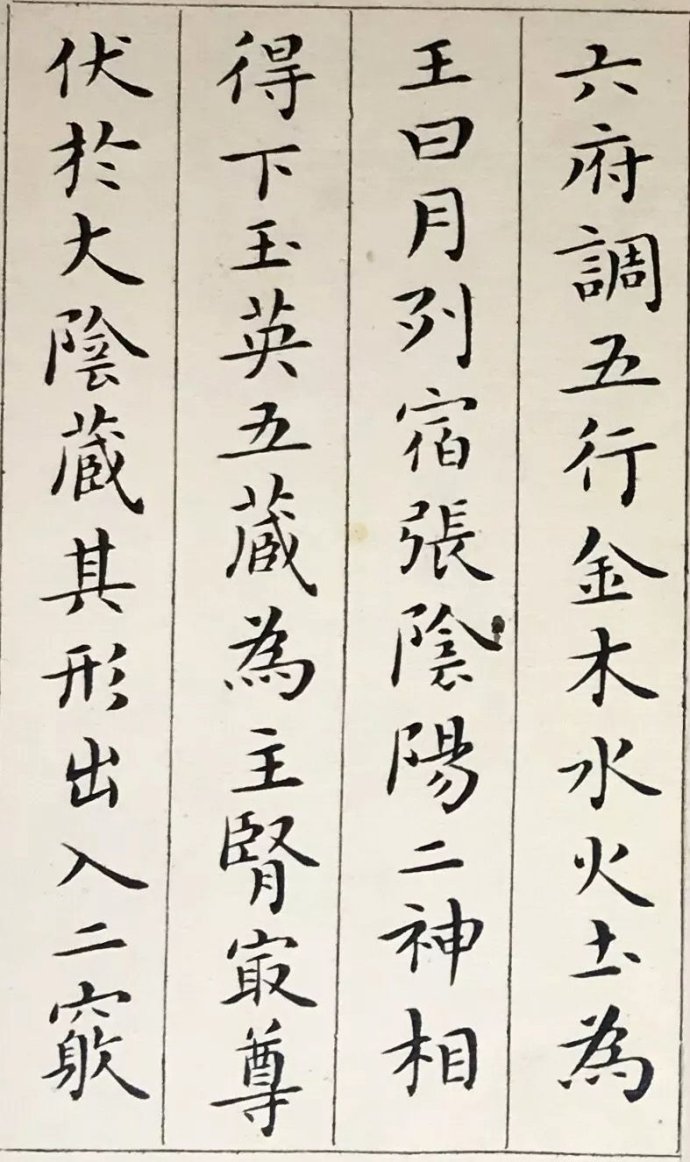 六府調五行金木水火土為
王日月列宿張陰陽二神相
得下玉英五蔵為主腎㝡尊
伏於大陰蔵其形出入二竅